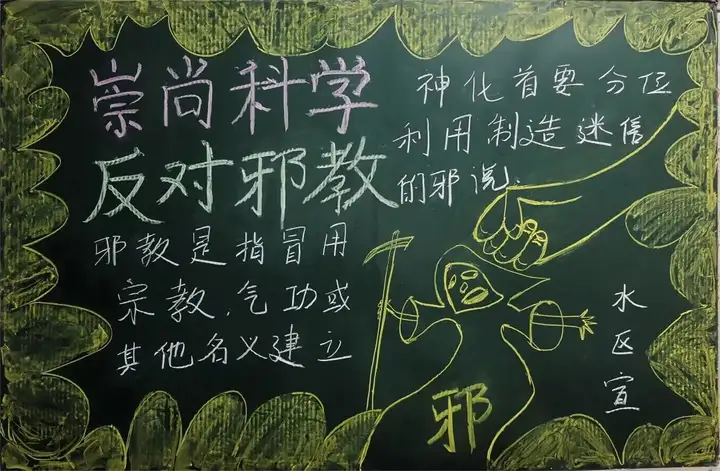 崇尚科学
反对邪教
邪教是指冒用
宗教、气功或
其他名义建立
神化首要分位
利用制造迷信
的邪说.
邪
水区宣